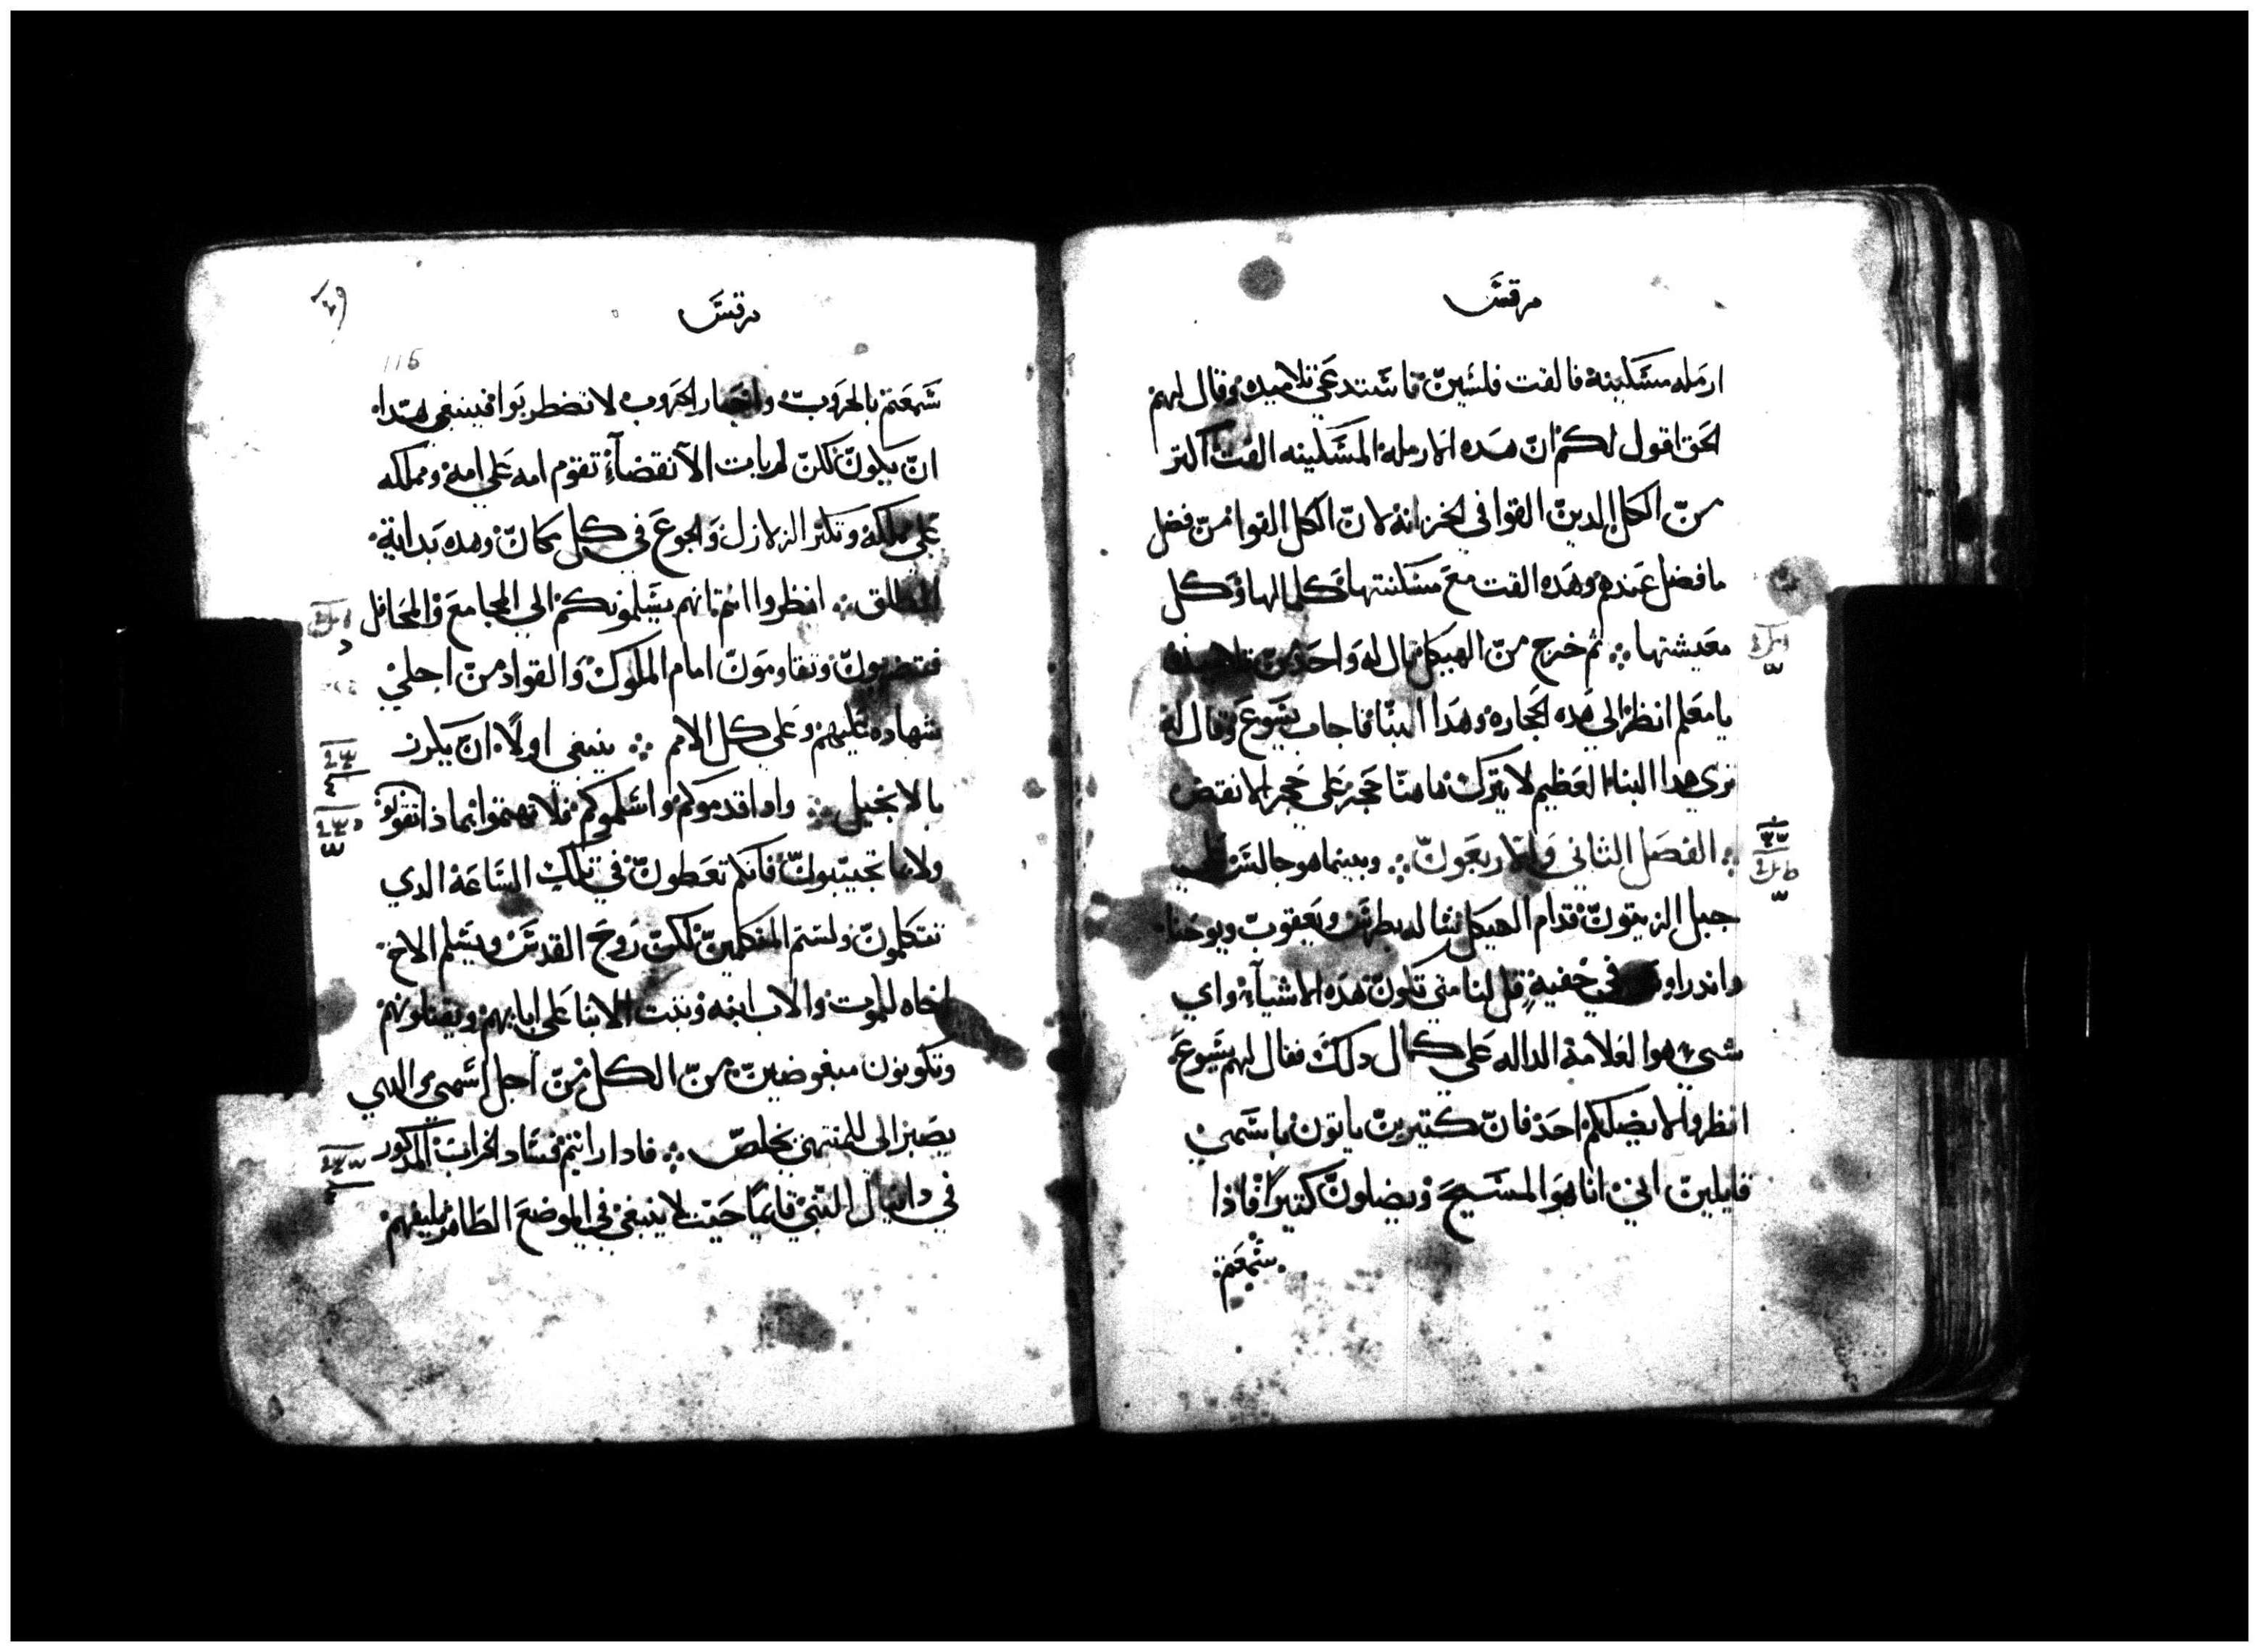 مرقس
ارمله مسكينة فالقت فلسين فاستدعي تلاميده وقال لهم
الحق اقول لكم ان هده الارملة المسكينه القت اكتر
من الكل الدين القوا في الخزانة لان الكل القوا من فضل
ما فضل عندهم وهده القت مع مسكنتها كلما لها وكل
معيشتها ⁘ ثم خرج من الهيكل قال له واحد من تلاميذه
يا معلم انظر الي هده الحجارة وهدا البنا فاجاب يسوع وقال له
تري هدا البناء العظيم لا يترك هاهنا حجر علي حجر الا نقض
⁘ الفصل الثاني والاربعون ⁘ وبينما هو جالس علي
جبل الزيتون قدام الهيكل سًاله بطرس ويعقوب ويوحنا
واندراوس في خفية قل لنا متي تكون هده الاشيآء واي
شيء هوا العلامة الداله علي كمال دلك فقال لهم يسوع
انظروا لا يضلكم احد فان كتيرين ياتون باسمي
قايلين اني انا هوا المسيح ويضلون كتيرًا فاذا
سمعتم
مرقس
115
سمعتم بالحروب واخبار الحروب لا تضطربوا فينبغي هدا
ان يكون لكن لم يات الآنقضآء تقوم امه علي امة ومملكه
علي مملكة وتكتر الزلازل والجوع في كل مكان وهده بداية
الطلق ⁘ انظروا انتم فانهم يسلمونكم الي المجامع والمحافل
فتضربون وتقاومون امام الملوك والقواد من اجلي
شهاده عليهم وعلي كل الامم ⁘ ينبغي اولًا ان يكرز
بالانجيل ⁘ وادا قدموكم واسلموكم فلا تهتموا بماذا تقولو
ولا بما تجيبون فانكم تعطون في تلك الساعة الدي
تتكلمون ولستم المتكلمين لكن روح القدس ويسلم الاخ
اخاه للموت والاب ابنه وتتب الابنا علي ابايهم ويقتلونهم
وتكونون مبغوضين من الكل من اجل اسمي والدي
يصبر الي المنتهي يخلص ⁘ فادا رايتم فساد الخراب المدكور
في دانيال النبي قايمًا حيت لا ينبغي في الموضع الطاهر